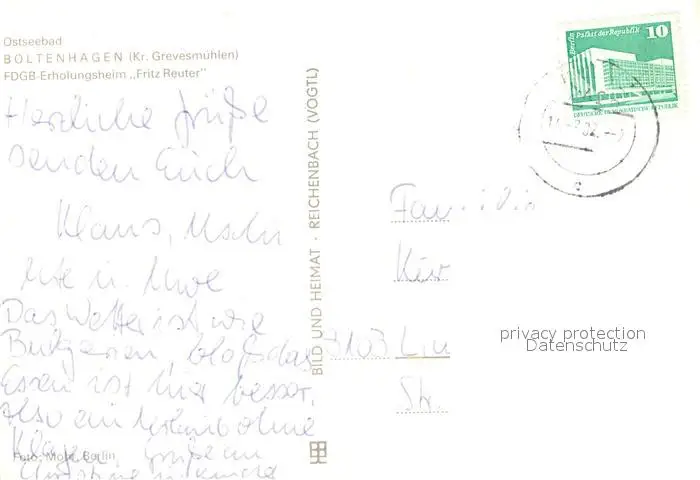 Ostseebad
BOLTENHAGEN (Kr. Grevesmühlen)
FDGB-Erholungsheim „Fritz Reuter"
Herzliche Grüße
senden Euch
Klaus,
Ute u. Uwe
Das Wetter ist wie
Bulgarien, bloß das
Essen ist hier besser,
also ein Urlaub ohne
Klagen, Grüße an
Foto: Mohr, Berlin
BILD UND HEIMAT · REICHENBACH (VOGTL)
Berlin Palast der Republik 10
DEUTSCHE DEMOKRATISCHE REPUBLIK
Fam
3103
Str.
privacy protection
Datenschutz